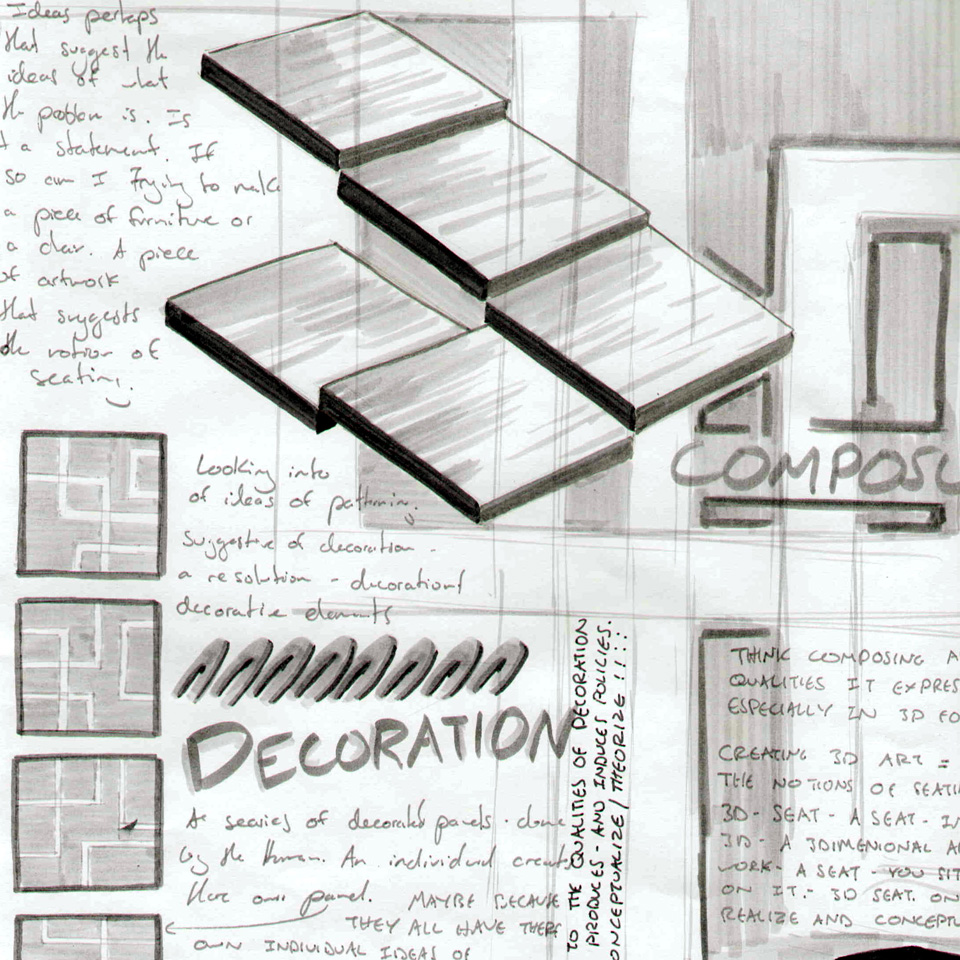 Ideas perhaps
that suggest the
ideas of what
the problem is. Is
a statement. If
so am I Trying to make
a piece of furniture or
a chair. A piece
of artwork
that suggests
the notion of
seating.
Looking into
of ideas of patterning.
Suggestive of decoration -
a resolution - decoration!
decorative elements
COMPOS
DECORATION
A searies of decorated panels. done
by the human. An individual creates
there own panel. MAYBE BECAUSE
THEY ALL HAVE THERE
OWN INDIVIDUAL IDEAS OF
TO THE QUALITIES OF DECORATION
PRODUCES - AND INDUCES POLICIES.
ONCEPTUALIZE / THEORIZE !!!!
THINK COMPOSING A
QUALITIES IT EXPRES
ESPECIALLY IN 3D FO
CREATING 3D ART =
THE NOTIONS OF SEATIN
3D - SEAT - A SEAT - IN
3D - A 3DIMENIONAL A
WORK - A SEAT - YOU SIT
ON IT - 3D SEAT. ON
REALIZE AND CONCEPTU